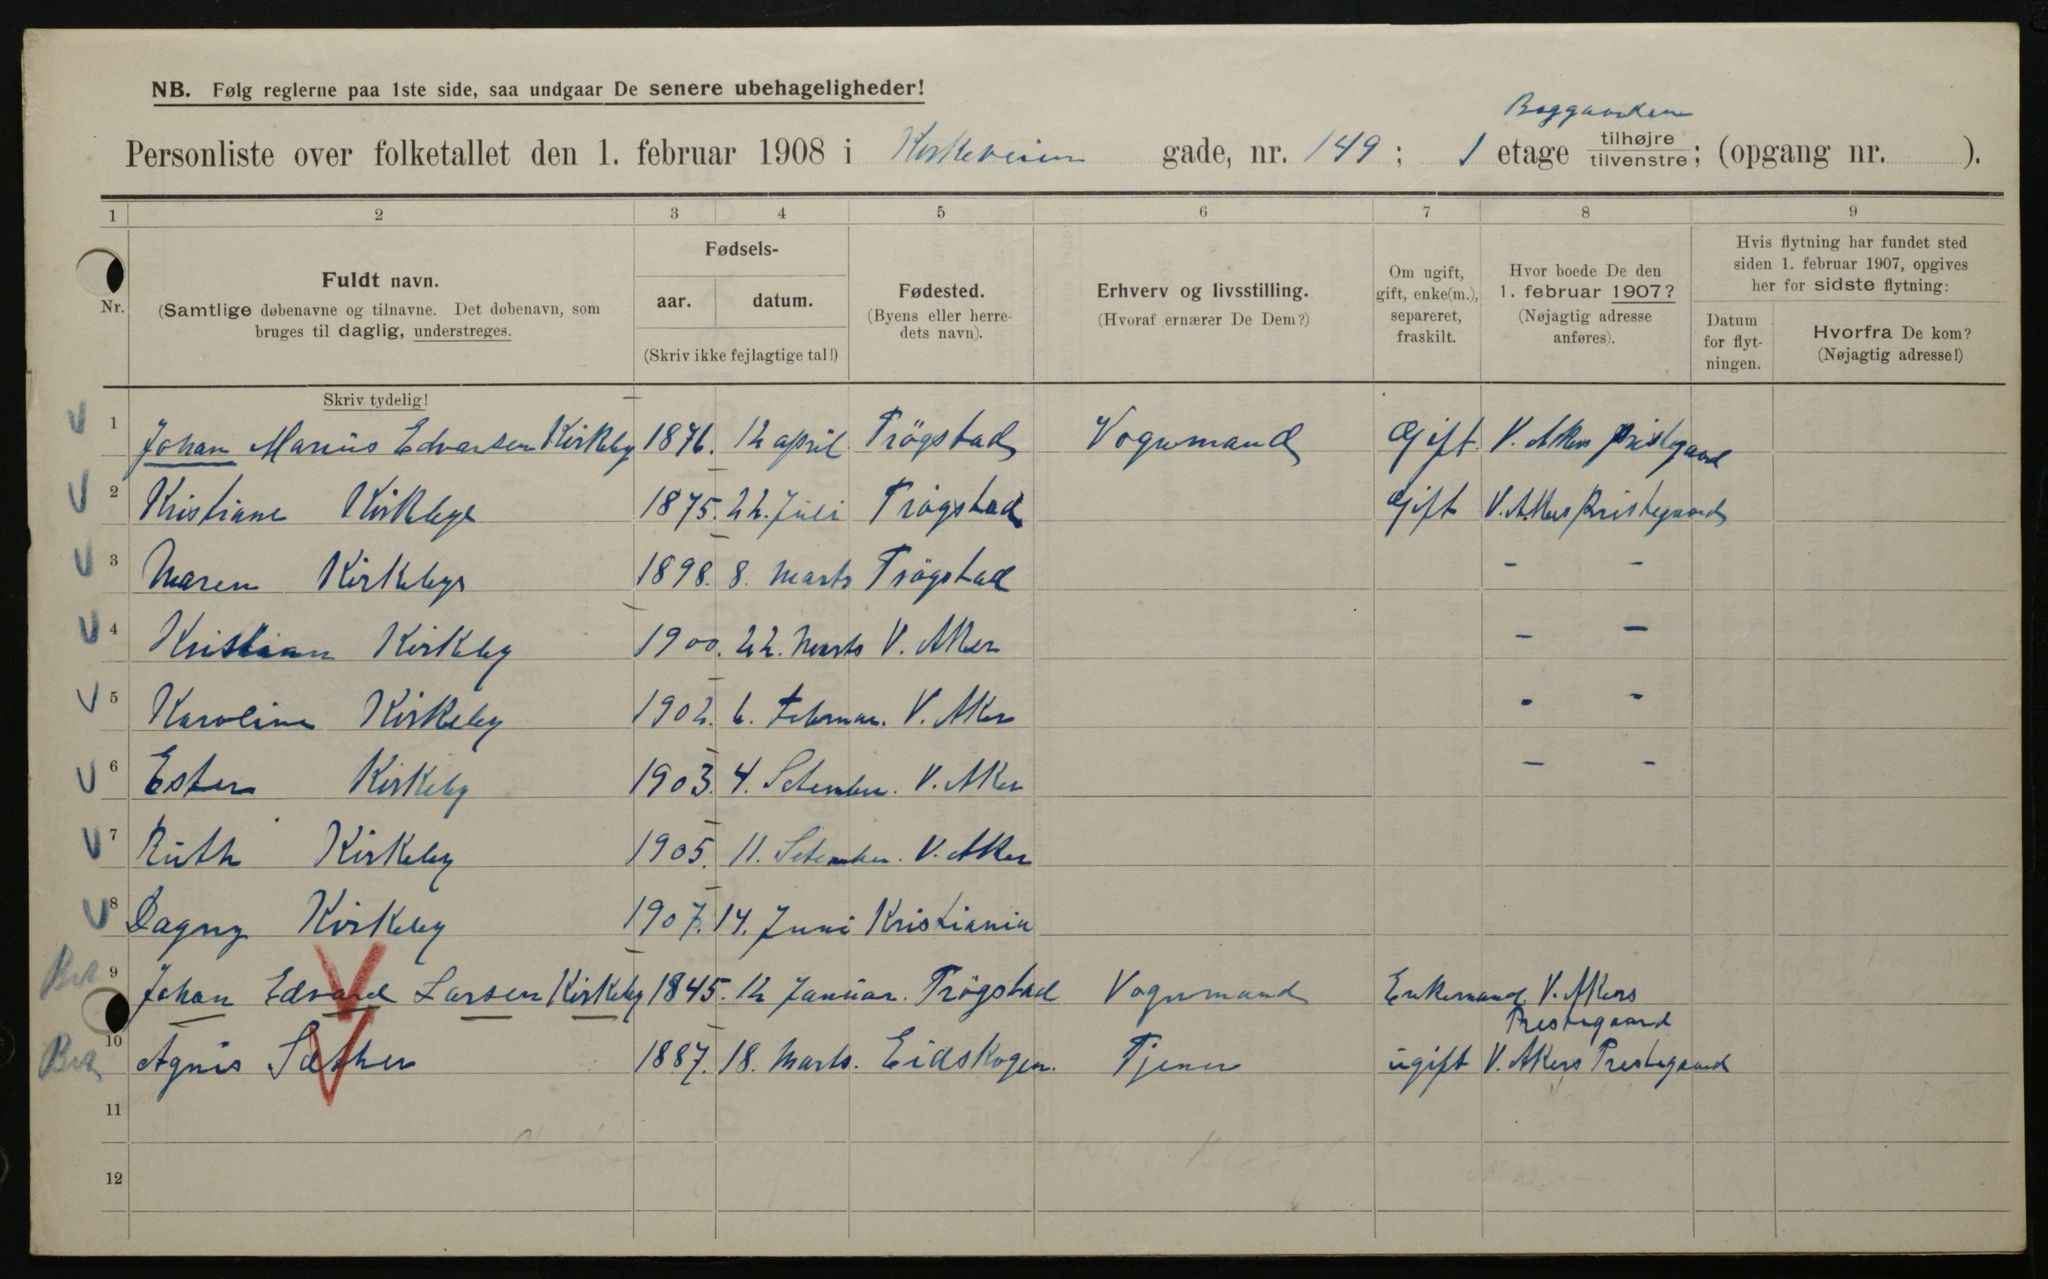 NB. Følg reglerne paa 1ste side, saa undgaar De senere ubehageligheder!
Personliste over folketallet den 1. februar 1908 i Kirkeveien gade, nr. 149; 1 etage tilhøjre tilvenstre; (opgang nr. ).
1 2 3 4 5 6 7 8 9
Nr.
Fuldt navn.
(Samtlige døbenavne og tilnavne. Det døbenavn, som
bruges til daglig, understreges.
Fødsels-
aar. datum.
(Skriv ikke fejlagtige tal!)
Fødested.
(Byens eller herre-
dets navn).
Erhverv og livsstilling.
(Hvoraf ernærer De Dem?)
Om ugift,
gift, enke(m.),
separeret,
fraskilt.
Hvor boede De den
1. februar 1907?
(Nøjagtig adresse
anføres).
Hvis flytning har fundet sted
siden 1. februar 1907, opgives
her for sidste flytning:
Datum
for flyt-
ningen.
Hvorfra De kom?
(Nøjagtig adresse!)
Skriv tydelig!
V 1 Johan Marius Edvarsen Kirkeby 1876. 12 april Trögstad Vognmand Gift V. Akers Pristegaard
V 2 Kristiane Kirkeby 1875. 22. Juli Trögstad Gift V. Akers Pristegaard
V 3 Maren Kirkeby 1898. 8. Marts Trögstad - -
V 4 Kristian Kirkeby 1900. 22. Marts V. Aker - -
V 5 Karoline Kirkeby 1902. 6. Februar. V. Aker - -
V 6 Ester Kirkeby 1903. 4. Setember. V. Aker - -
V 7 Ruth Kirkeby 1905. 11. Setember. V. Aker
V 8 Dagny Kirkeby 1907. 14. Juni Kristiania
9 Johan Edvard Larsen Kirkeby 1845. 12 Januar. Trögstad Vognmand Enkemand V. Akers
Prestegaard
10 Agnis Sæther 1887. 18. Marts. Eidskogen. Tjener ugift V. Akers Prestegaard
11
12